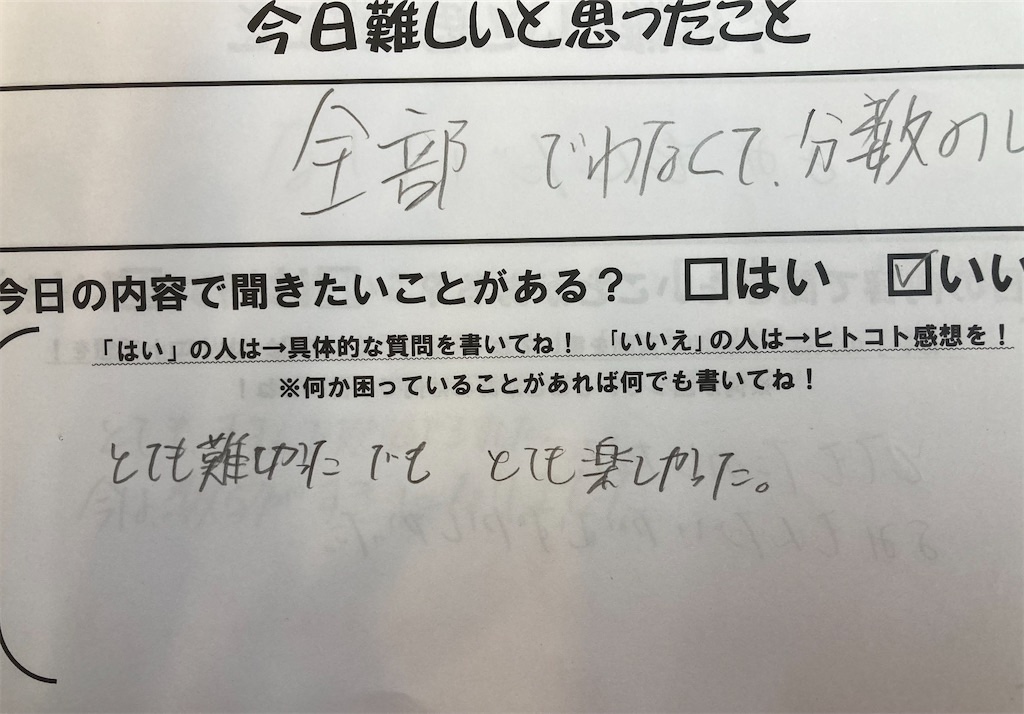 今日難しいと思ったこと
全部 でわなくて、分数のし
今日の内容で聞きたいことがある? □はい ☑いい
「はい」の人は→具体的な質問を書いてね! 「いいえ」の人は→ヒトコト感想を!
※何か困っていることがあれば何でも書いてね!
とても難しかった でも とても楽しかった。